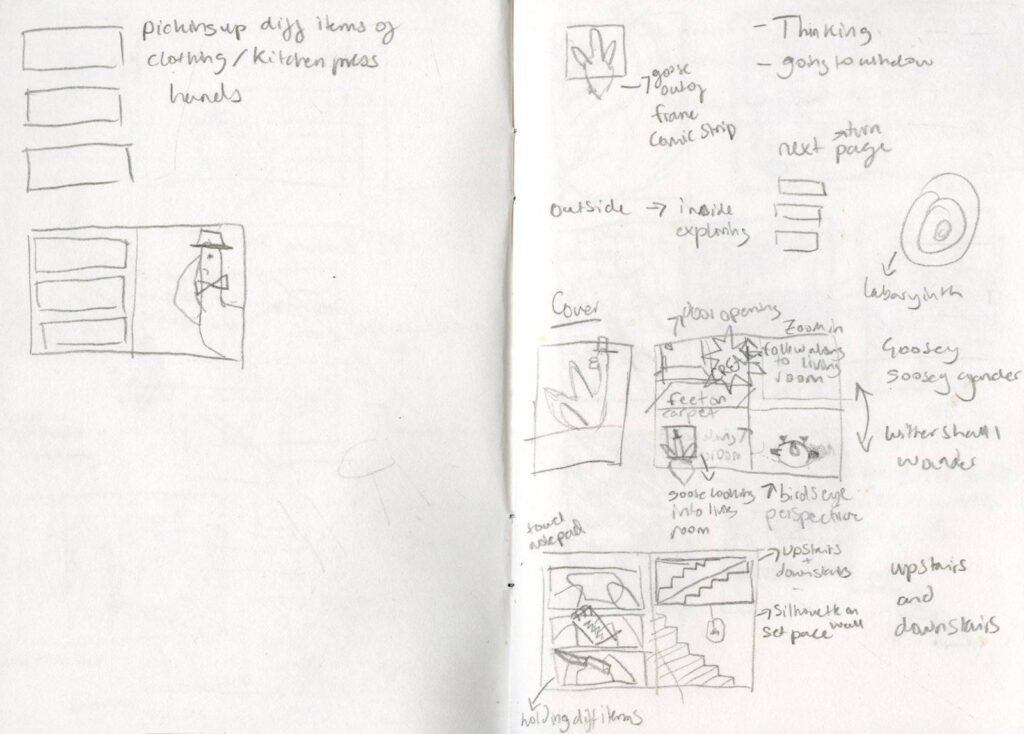 Picking up diff items of
clothing / Kitchen press
hands
- Thinking
- going to window
goose
out of
frame
comic strip
next turn
page
outside → inside
exploring
Labaryinth
Cover
door opening
Zoom in
follow along
to living
room
feet on
carpet
goose looking
into living
room
birds eye
perspective
Goosey
Goosey gander
Wither shall I
wander
towel
notepad
upstairs
+
downstairs
silhouette on
wall
set pace
upstairs
and
downstairs
holding diff items